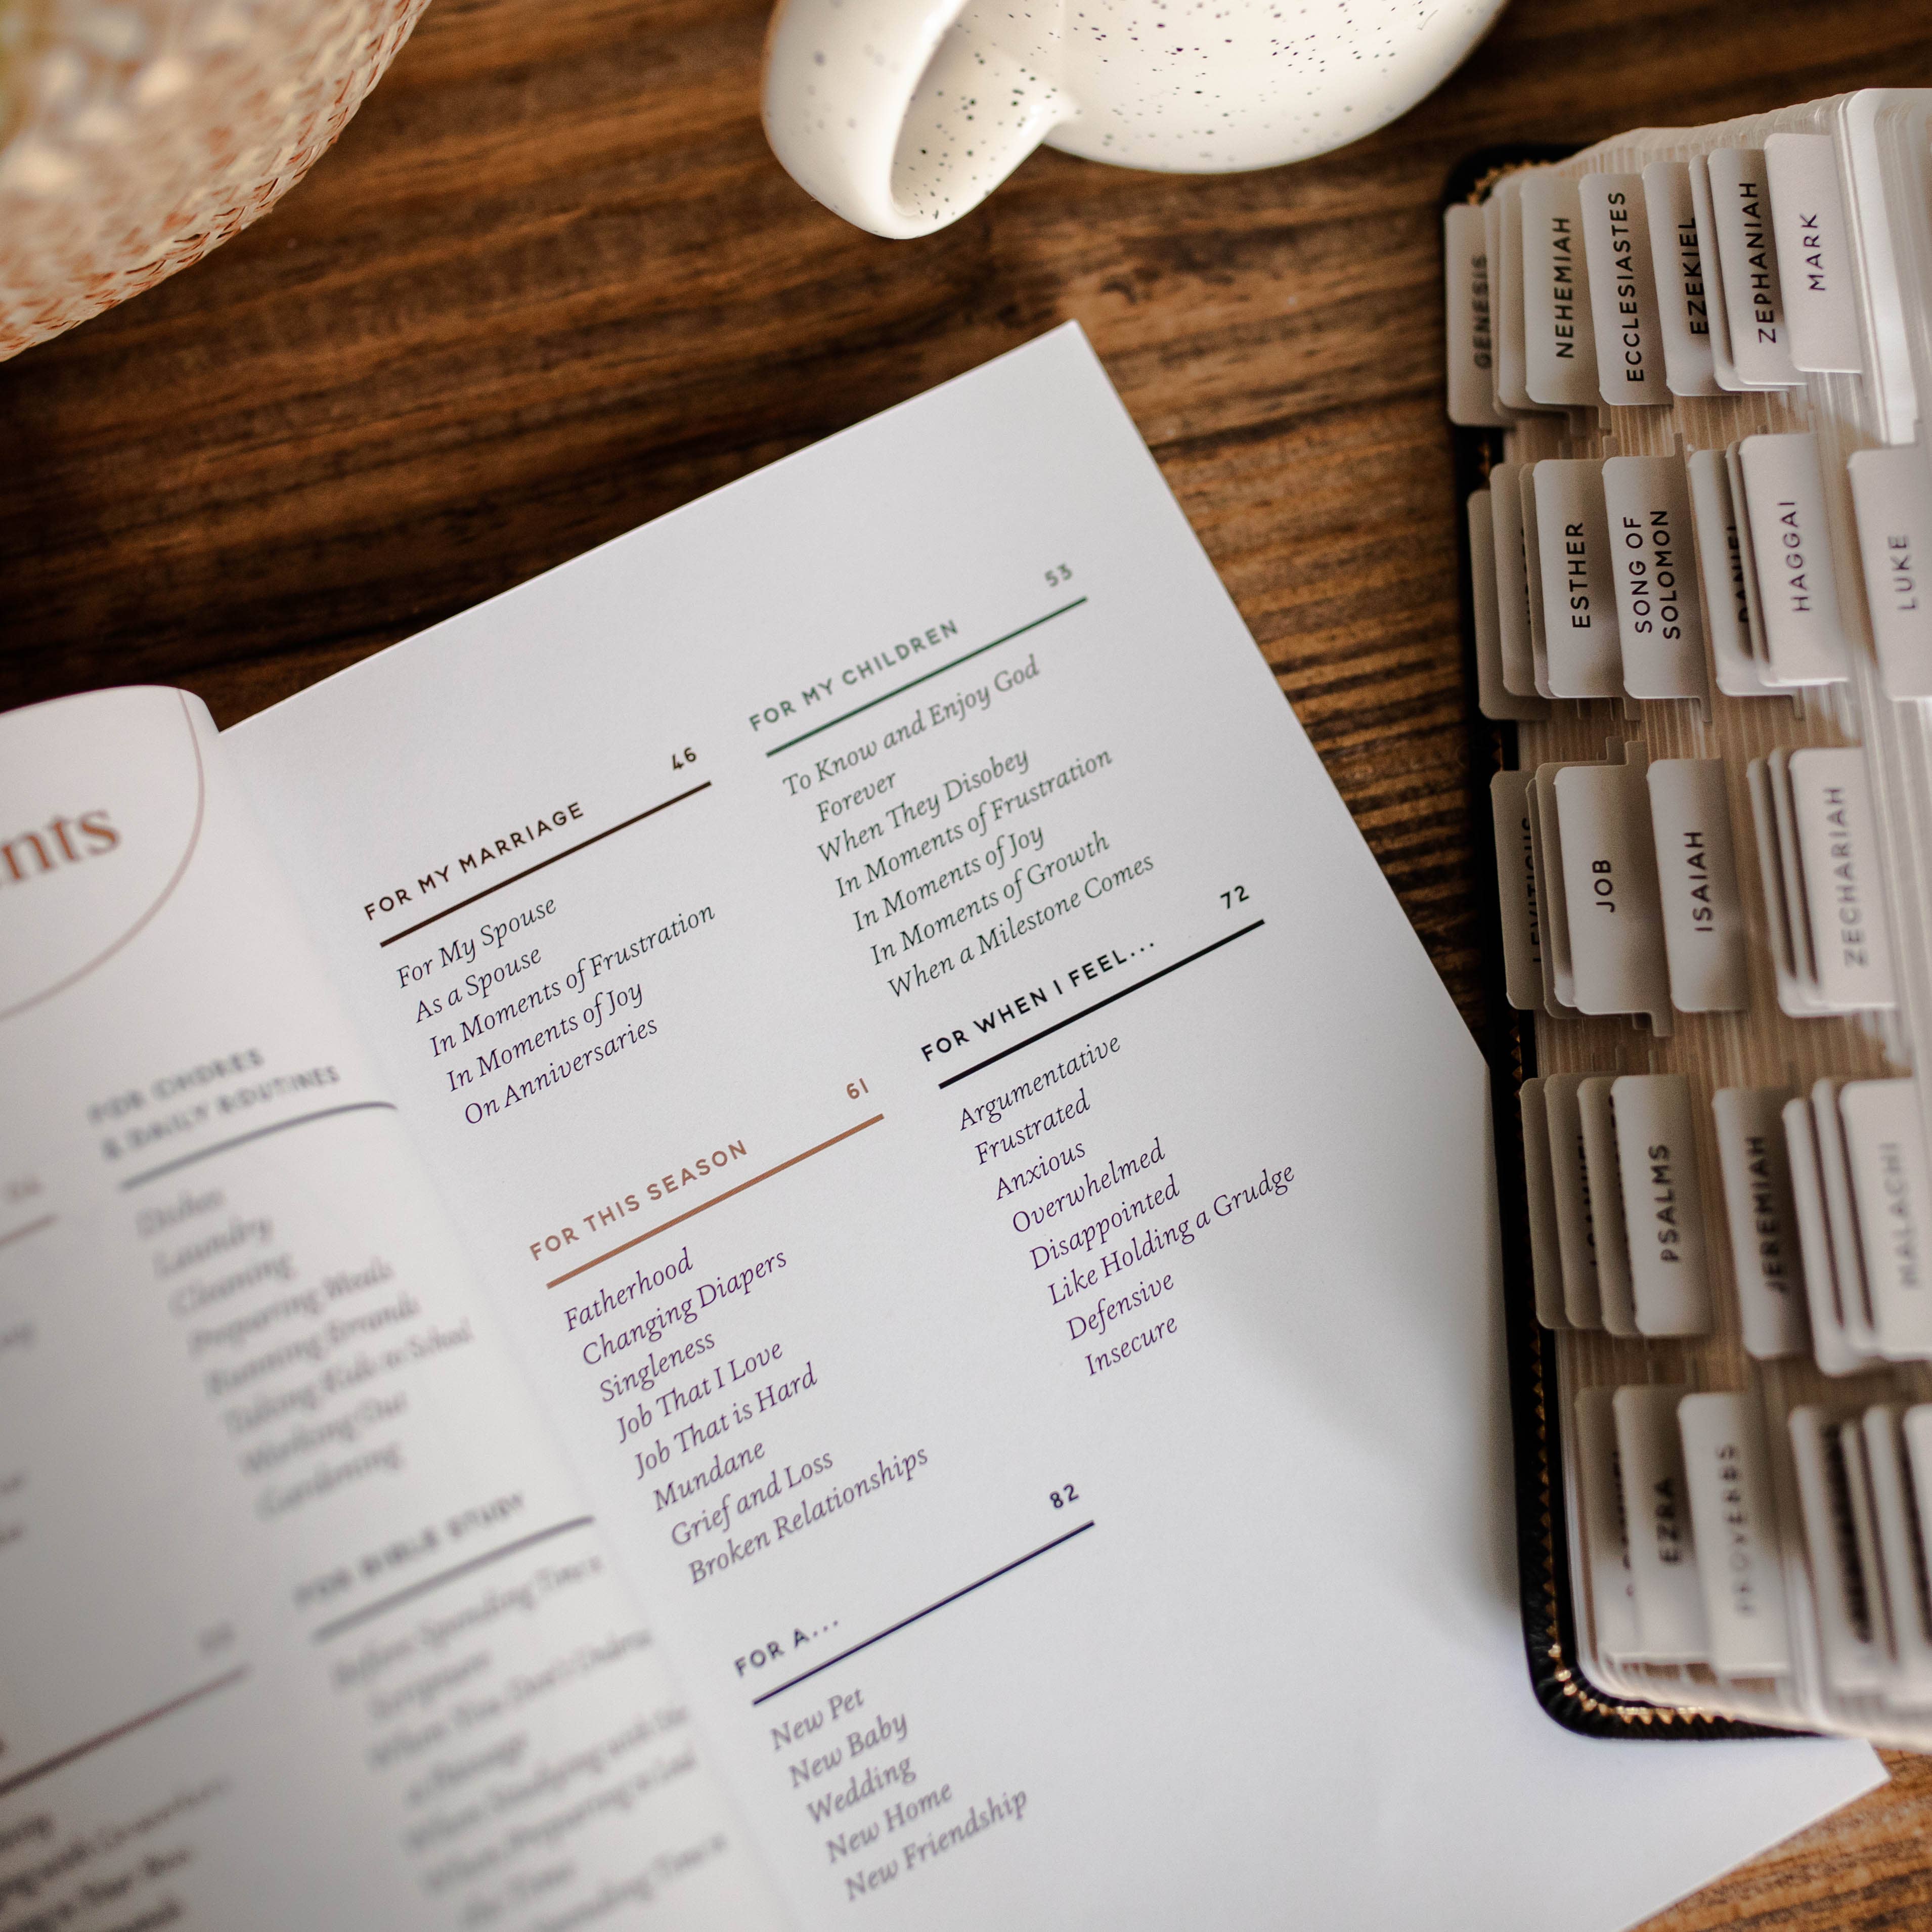 nts
FOR CHORES
& DAILY ROUTINES
Dishes
Laundry
Cleaning
Preparing Meals
Running Errands
Taking Kids to School
Working Out
Gardening
FOR BIBLE STUDY
Before Spending Time
Scripture
a Passage
FOR MY MARRIAGE 46
For My Spouse
As a Spouse
In Moments of Frustration
In Moments of Joy
On Anniversaries
FOR THIS SEASON 61
Fatherhood
Changing Diapers
Singleness
Job That I Love
Job That is Hard
Mundane
Grief and Loss
Broken Relationships
FOR MY CHILDREN 53
To Know and Enjoy God
Forever
When They Disobey
In Moments of Frustration
In Moments of Joy
In Moments of Growth
When a Milestone Comes
FOR WHEN I FEEL... 72
Argumentative
Frustrated
Anxious
Overwhelmed
Disappointed
Like Holding a Grudge
Defensive
Insecure
FOR A... 82
New Pet
New Baby
Wedding
New Home
New Friendship
GENESIS
NEHEMIAH
ECCLESIASTES
EZEKIEL
ZEPHANIAH
MARK
ESTHER
SONG OF
SOLOMON
DANIEL
HAGGAI
LUKE
LEVITICUS
JOB
ISAIAH
ZECHARIAH
PSALMS
JEREMIAH
MALACHI
EZRA
PROVERBS